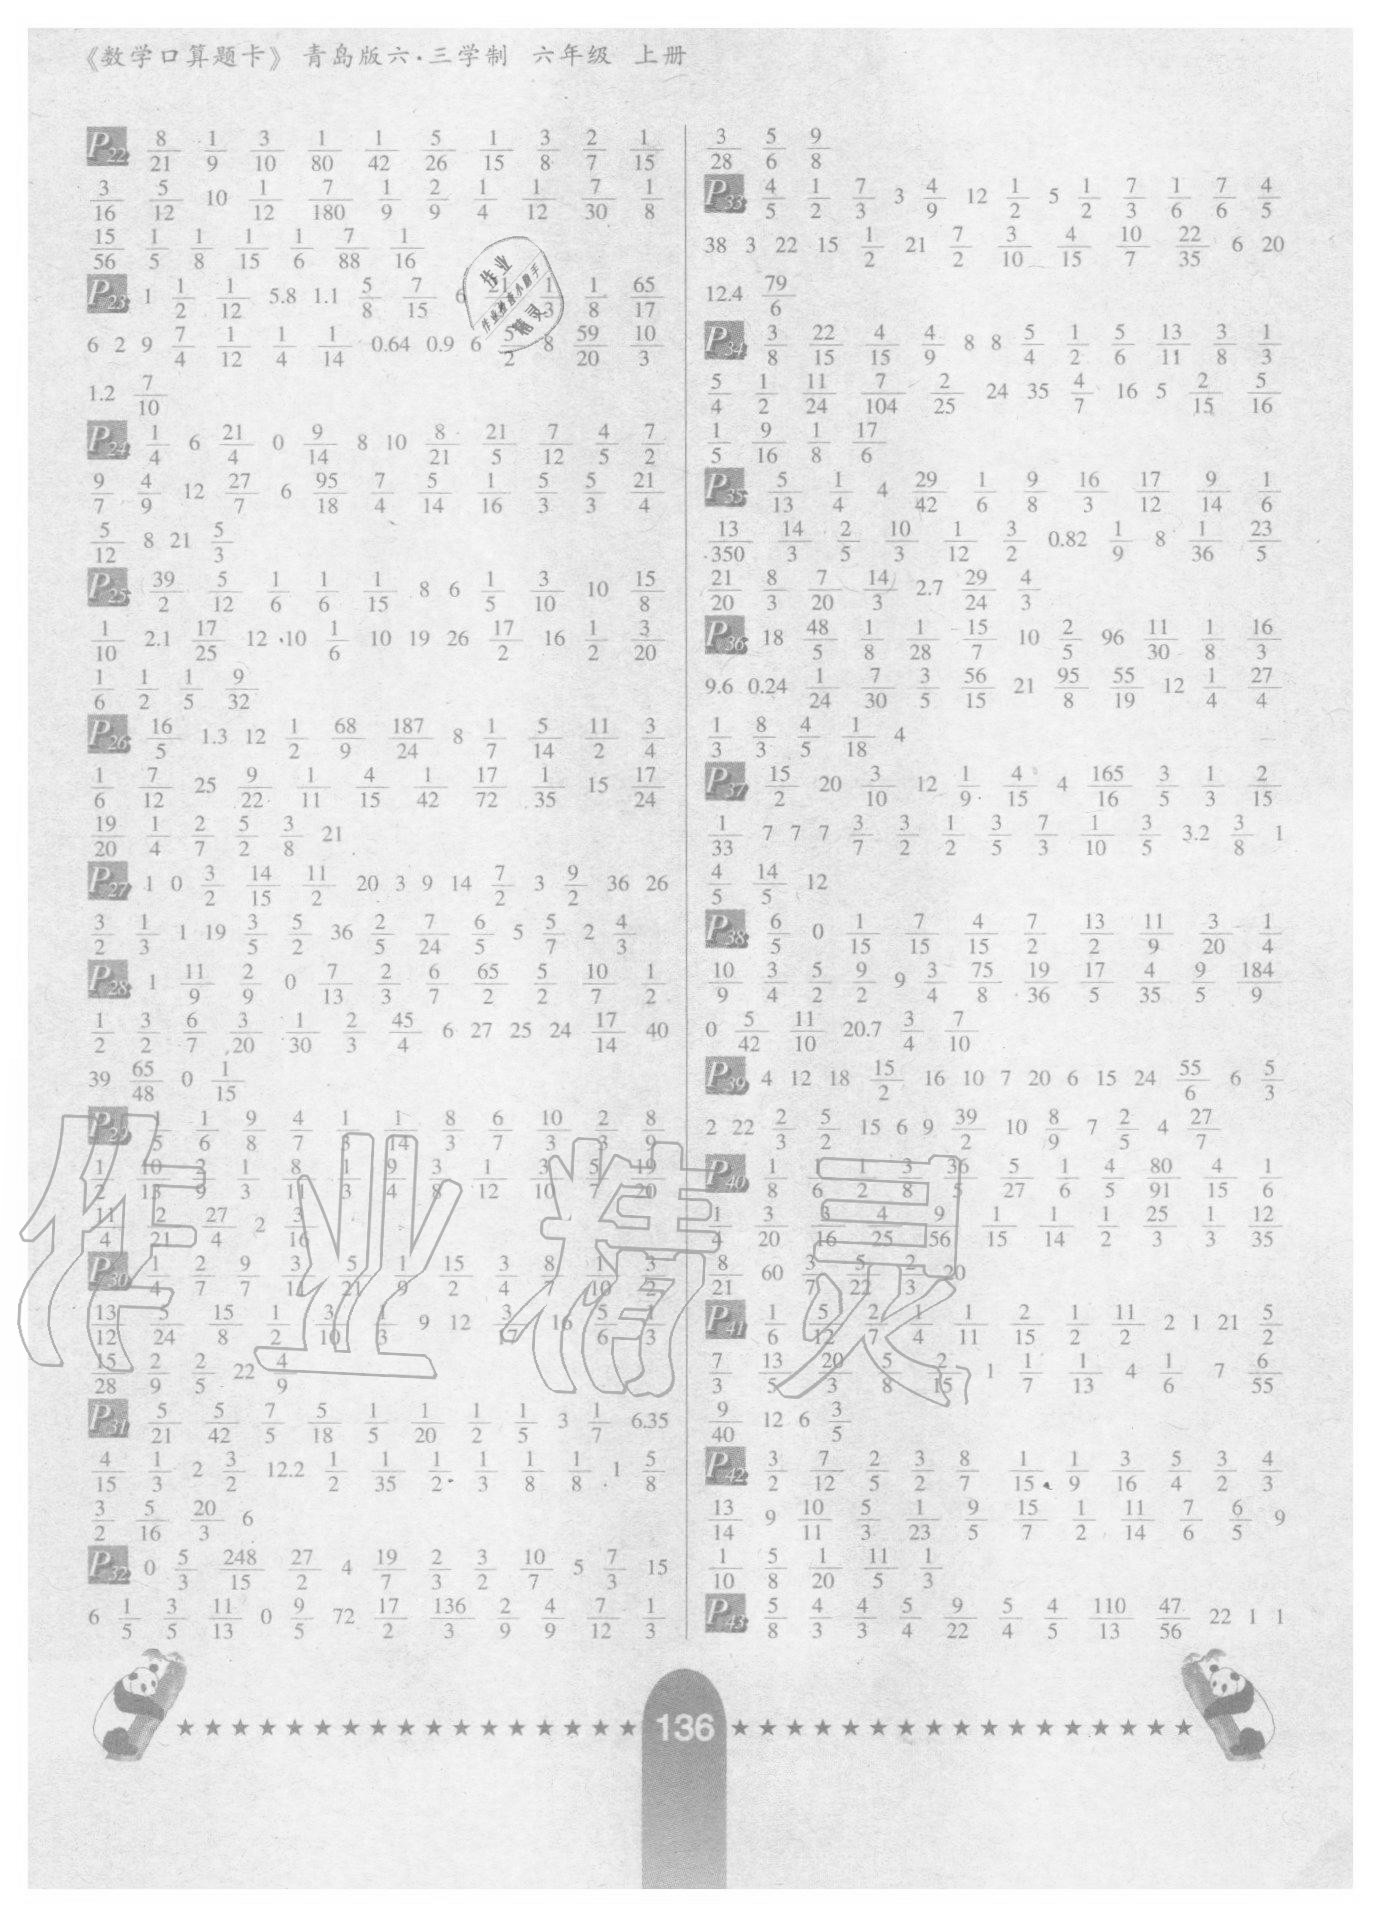 《数学口算题卡》 青岛版六·三学制 六年级 上册
P22 8/21 1/9 3/10 1/80 1/42 5/26 1/15 3/8 2/7 1/15
3/16 5/12 10 1/12 7/180 1/9 2/9 1/4 1/12 7/30 1/8
15/56 1/5 1/8 1/15 1/6 7/88 1/16
P23 1 1/2 1/12 5.8 1.1 5/8 7/15 6 1/8 65/17
6 2 9 7/4 1/12 1/4 1/14 0.64 0.9 6 5/2 8 59/20 10/3
1.2 7/10
P24 1/4 6 21/4 0 9/14 8 10 8/21 21/5 7/12 4/5 7/2
9/7 4/9 12 27/7 6 95/18 7/4 5/14 1/16 5/3 5/3 21/4
5/12 8 21 5/3
P25 39/2 5/12 1/6 1/6 1/15 8 6 1/5 3/10 10 15/8
1/10 2.1 17/25 12 10 1/6 10 19 26 17/2 16 1/2 3/20
1/6 1/2 1/5 9/32
P26 16/5 1.3 12 1/2 68/9 187/24 8 1/7 5/14 11/2 3/4
1/6 7/12 25 9/22 1/11 4/15 1/42 17/72 1/35 15 17/24
19/20 1/4 2/7 5/2 3/8 21
P27 1 0 3/2 14/15 11/2 20 3 9 14 7/2 3 9/2 36 26
3/2 1/3 1 19 3/5 5/2 36 2/5 7/24 6/5 5 5/7 2 4/3
P28 1 11/9 2/9 0 7/13 2/3 6/7 65/2 5/2 10/7 1/2
1/2 3/2 6/7 3/20 1/30 2/3 45/4 6 27 25 24 17/14 40
39 65/48 0 1/15
P29 1/5 1/6 9/8 4/7 1/3 1/14 8/3 6/7 10/3 2/3 8/9
1/2 10/13 2/9 1/3 8/11 1/3 9/4 3/8 1/12 3/10 5/7 19/20
11/4 2/21 27/4 2 3/16
P30 1/4 2/7 9/7 5/21 1/9 15/2 3/4 8/7 1/10 3/2
13/12 5/24 15/8 1/2 3/10 1/3 9 12 3/17 16 5/6 1/3
15/28 2/9 2/5 22 4/9
P31 5/21 5/42 7/5 5/18 1/5 1/20 1/2 1/5 3 1/7 6.35
4/15 1/3 2 3/2 12.2 1/2 1/35 1/2 1/3 1/8 1/8 1 5/8
3/2 5/16 20/3 6
P32 0 5/3 248/15 27/2 4 19/7 2/3 3/2 10/7 5 7/3 15
6 1/5 3/5 11/13 0 9/5 72 17/2 136/3 2/9 4/9 7/12 1/3
3/28 5/6 9/8
P33 4/5 1/2 7/3 3 4/9 12 1/2 5 1/2 7/3 1/6 7/6 4/5
38 3 22 15 1/2 21 7/2 3/10 4/15 10/7 22/35 6 20
12.4 79/6
P34 3/8 22/15 4/15 4/9 8 8 5/4 1/2 5/6 13/11 3/8 1/3
5/4 1/2 11/24 7/104 2/25 24 35 4/7 16 5 2/15 5/16
1/5 9/16 1/8 17/6
P35 5/13 1/4 4 29/42 1/6 9/8 16/3 17/12 9/14 1/6
13/350 14/3 2/5 10/3 1/12 3/2 0.82 1/9 8 1/36 23/5
21/20 8/3 7/20 14/3 2.7 29/24 4/3
P36 18 48/5 1/8 1/28 15/7 10 2/5 96 11/30 1/8 16/3
9.6 0.24 1/24 7/30 3/5 56/15 21 95/8 55/19 12 1/4 27/4
1/3 8/3 4/5 1/18 4
P37 15/2 20 3/10 12 1/9 4/15 4 165/16 3/5 1/3 2/15
1/33 7 7 7 3/7 3/2 1/2 3/5 7/3 1/10 3/5 3.2 3/8 1
4/5 14/5 12
P38 6/5 0 1/15 7/15 4/15 7/2 13/2 11/9 3/20 1/4
10/9 3/4 5/2 9/2 9 3/4 75/8 19/36 17/5 4/35 9/5 184/9
0 5/42 11/10 20.7 3/4 7/10
P39 4 12 18 15/2 16 10 7 20 6 15 24 55/6 6 5/3
2 22 2/3 5/2 15 6 9 39/2 10 8/9 7 2/5 4 27/7
P40 1/8 1/6 1/2 3/8 36/5 5/27 1/6 4/5 80/91 4/15 1/6
1/4 3/20 3/16 4/25 9/56 1/15 1/14 1/2 25/3 1/3 12/35
8/21 60 3/7 5/22 2/3 20
P41 1/6 5/12 2/7 1/4 1/11 2/15 1/2 11/2 2 1 21 5/2
7/3 13/5 20/3 5/8 2/15 1 1/7 1/13 4 1/6 7 6/55
9/40 12 6 3/5
P42 3/2 7/12 2/5 3/2 8/7 1/15 1/9 3/16 5/4 3/2 4/3
13/14 9 10/11 5/3 1/23 9/5 15/7 1/2 11/14 7/6 6/5 9
1/10 5/8 1/20 11/5 1/3
P43 5/8 4/3 4/3 5/4 9/22 5/4 4/5 110/13 47/56 22 1 1
作业精灵
136